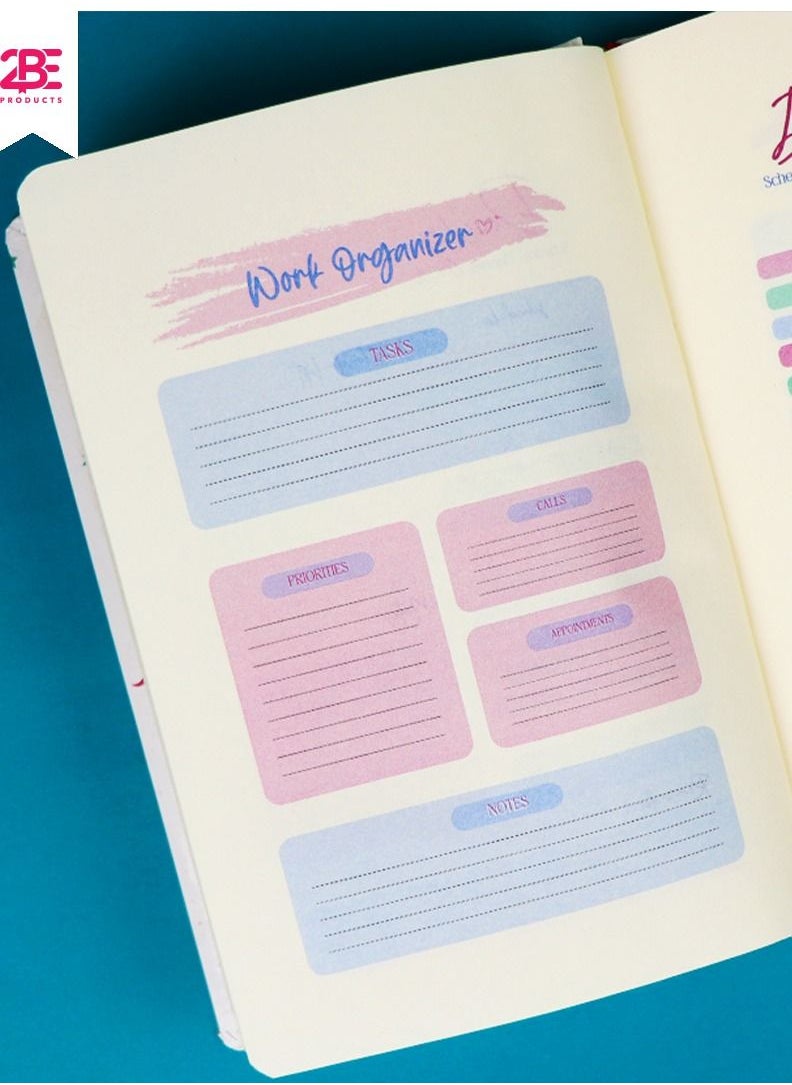 2BE
PRODUCTS
Work Organizer
TASKS
PRIORITIES
CALLS
APPOINTMENTS
NOTES